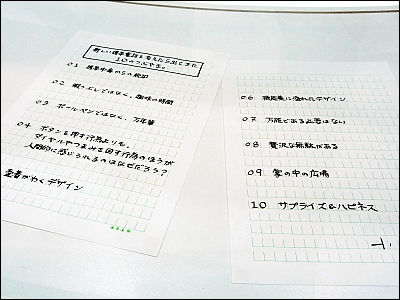 新しい携帯電話を考えたら出てきた
10のつぶやき。
01 携帯中毒からの脱却
02 暇つぶしではなく、趣味の時間
03 ボールペンではなく、万年筆
04 ボタンを押す行為よりも、
ダイヤルやつまみを回す行為のほうが
人間的に感じられるのはなぜだろう?
愛着がわくデザイン
06 機能美に溢れたデザイン
07 万能である必要はない
08 贅沢な無駄がある
09 掌の中の広場
10 サプライズ&ハピネス